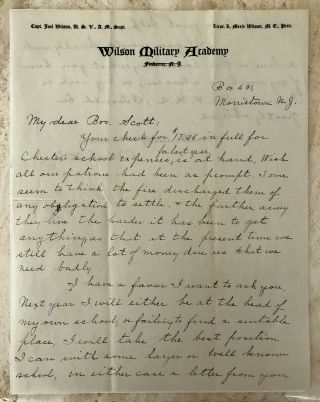 Capt. Joel Wilson, U. S. V., A. M., Supt.
Lieut. L. Merle Wilson, M. E., Prin.
Wilson Military Academy
Finderne, N. J.
Box 431
Morristown N.J.
My dear Bro. Scott:
Your check for $17.25 in full for
Chester's school expenses, to last year, is at hand. Wish
all our patrons had been as prompt. Some
seem to think the fire discharged them of
any obligation to settle, & the farther away
they live the harder it has been to get
anything, so that at the present time we
still have a lot of money due us that we
need badly.
I have a favor I want to ask you.
Next year I will either be at the head of
my own school, or failing to find a suitable
place, I will take the best position
I can with some larger or well known
school, in either case a letter from you